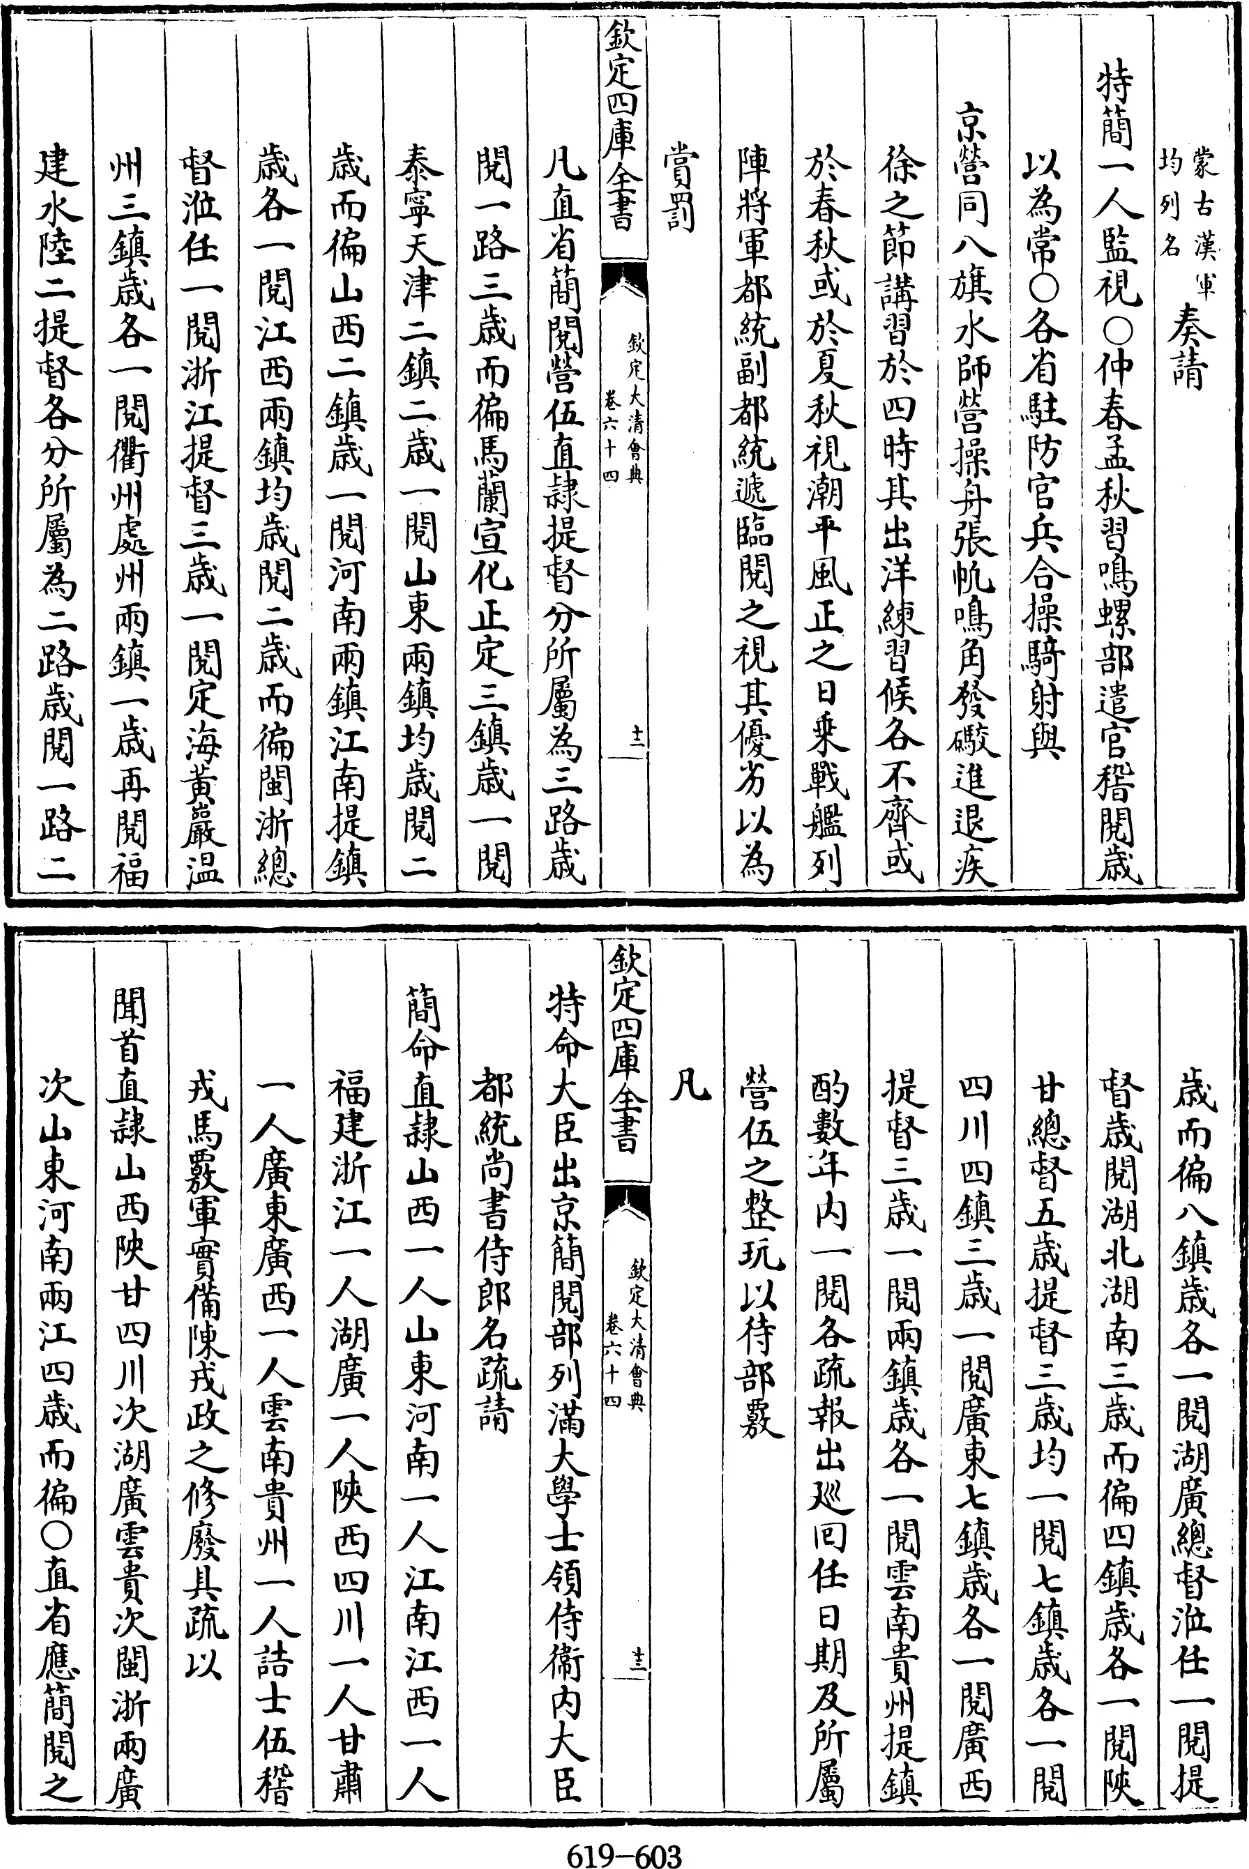 蒙古漢軍
均列名
奏請
特簡一人監視〇仲春孟秋習鳴螺部遣官稽閱歲
以為常〇各省駐防官兵合操騎射與
京營同八旗水師營操舟張帆鳴角發礮進退疾
徐之節講習於四時其出洋練習候各不齊或
於春秋或於夏秋視潮平風正之日乗戰艦列
陣將軍都統副都統遞臨閱之視其優劣以為
賞罰
欽定四庫全書
欽定大清會典
卷六十四
十二
凡直省簡閱營伍直隸提督分所屬為三路歲
閱一路三歲而徧馬蘭宣化正定三鎮歲一閱
泰寧天津二鎮二歲一閱山東兩鎮均歲閱二
歲而徧山西二鎮歲一閱河南兩鎮江南提鎮
歲各一閱江西兩鎮均歲閱二歲而徧閩浙總
督涖任一閱浙江提督三歲一閱定海黃巖温
州三鎮歲各一閱衢州處州兩鎮一歲再閱福
建水陸二提督各分所屬為二路歲閱一路二
歲而徧八鎮歲各一閱湖廣總督涖任一閱提
督歲閱湖北湖南三歲而徧四鎮歲各一閱陜
甘總督五歲提督三歲均一閱七鎮歲各一閱
四川四鎮三歲一閱廣東七鎮歲各一閱廣西
提督三歲一閱兩鎮歲各一閱雲南貴州提鎮
酌數年内一閱各疏報出廵囘任日期及所屬
營伍之整玩以待部覈
凡
欽定四庫全書
欽定大清會典
卷六十四
十三
特命大臣出京簡閱部列滿大學士領侍衞内大臣
都統尚書侍郎名疏請
簡命直隸山西一人山東河南一人江南江西一人
福建浙江一人湖廣一人陜西四川一人甘肅
一人廣東廣西一人雲南貴州一人詰士伍稽
戎馬覈軍實備陳戎政之修廢具疏以
聞首直隸山西陜甘四川次湖廣雲貴次閩浙兩廣
次山東河南兩江四歲而徧〇直省應簡閱之
619-603